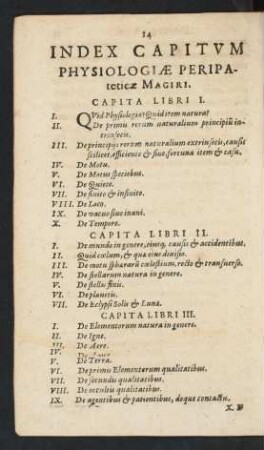 14
INDEX CAPITVM
PHYSIOLOGIÆ PERIPA-
teticæ MAGIRI.
CAPITA LIBRI I.
I. QVid Physiologia? Quid item natura?
II. De primis rerum naturalium principiis in-
trinsecis.
III. De principiis rerum naturalium extrinsecis, causis
scilicet efficiente & fine, fortuna item & casu.
IV. De Motu.
V. De Motus speciebus.
VI. De Quiete.
VII. De finito & infinito.
VIII. De Loco.
IX. De vacuo sive inani.
X. De Tempore.
CAPITA LIBRI II.
I. De mundo in genere, eiusq; causis & accidentibus.
II. Quid cœlum, & quæ eius divisio.
III. De motu sphærarũ cœlestium, recto & transverso.
IV. De stellarum natura in genere.
V. De stellis fixis.
VI. De planetis.
VII. De Eclypsi Solis & Lunæ.
CAPITA LIBRI III.
I. De Elementorum natura in genere.
II. De Igne.
III. De Aere.
IV.
V. De Terra.
VI. De primis Elementorum qualitatibus.
VII. De secundis qualitatibus.
VIII. De occultis qualitatibus.
IX. De agentibus & patientibus, deque contactu.